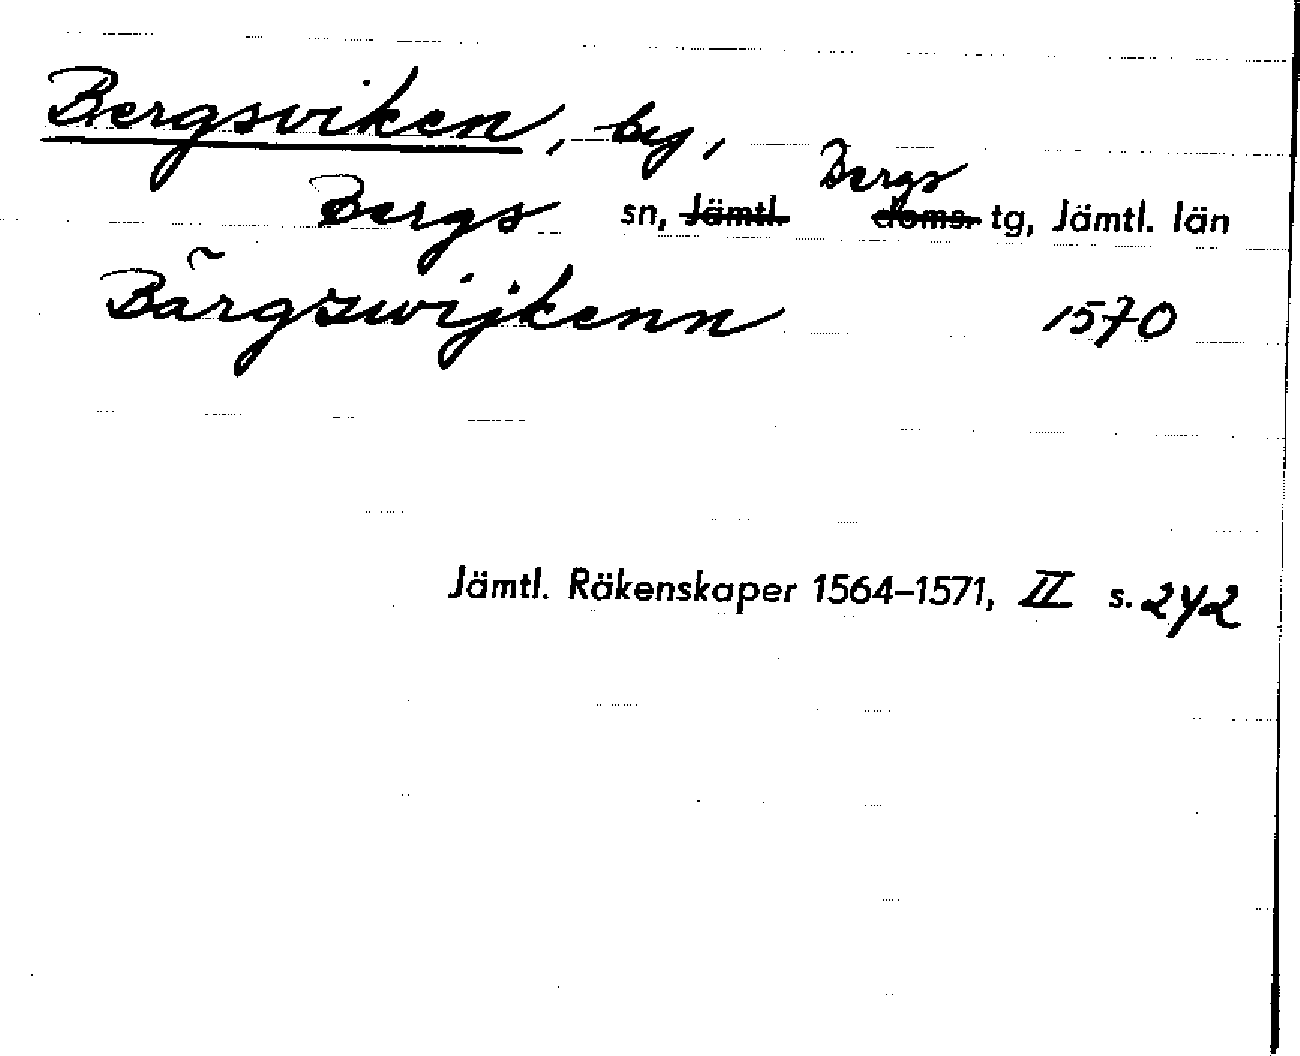 Bergsviken, by,
Bergs sn, Jämtl. Bergs doms. tg, Jämtl. län
Bãrgzwijkenn 1570
Jämtl. Räkenskaper 1564–1571, II s. 242